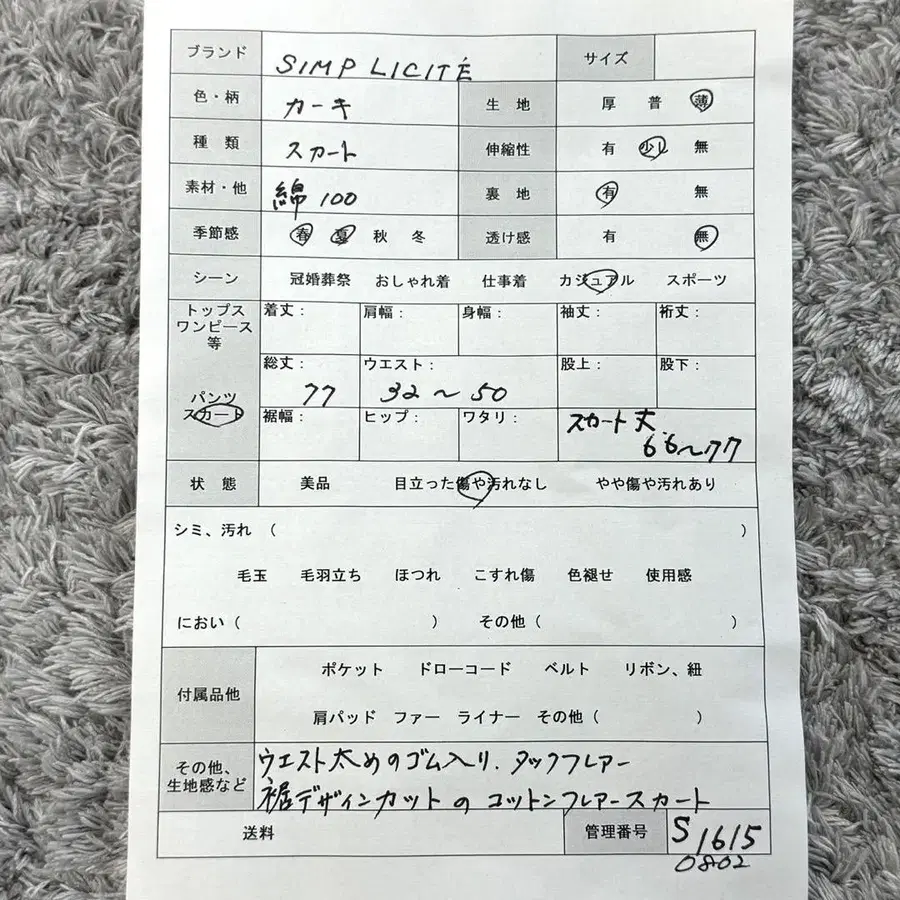 ブランド SIMPLICITÉ サイズ
色・柄 カーキ 生地 厚 普 薄
種類 スカート 伸縮性 有 少し 無
素材・他 綿 100 裏地 有 無
季節感 春 夏 秋 冬 透け感 有 無
シーン 冠婚葬祭 おしゃれ着 仕事着 カジュアル スポーツ
トップス
ワンピース
等
着丈: 肩幅: 身幅: 袖丈: 裄丈:
パンツ
スカート
総丈: ウエスト: 股上: 股下:
77 32〜50
裾幅: ヒップ: ワタリ: スカート丈
66〜77
状態 美品 目立った傷や汚れなし やや傷や汚れあり
シミ、汚れ ( )
毛玉 毛羽立ち ほつれ こすれ傷 色褪せ 使用感
におい ( ) その他 ( )
付属品他
ポケット ドローコード ベルト リボン、紐
肩パッド ファー ライナー その他 ( )
その他、
生地感など
ウエスト太めのゴム入り. タックフレアー
裾デザインカットの コットンフレアースカート
送料 管理番号 S1615
0802